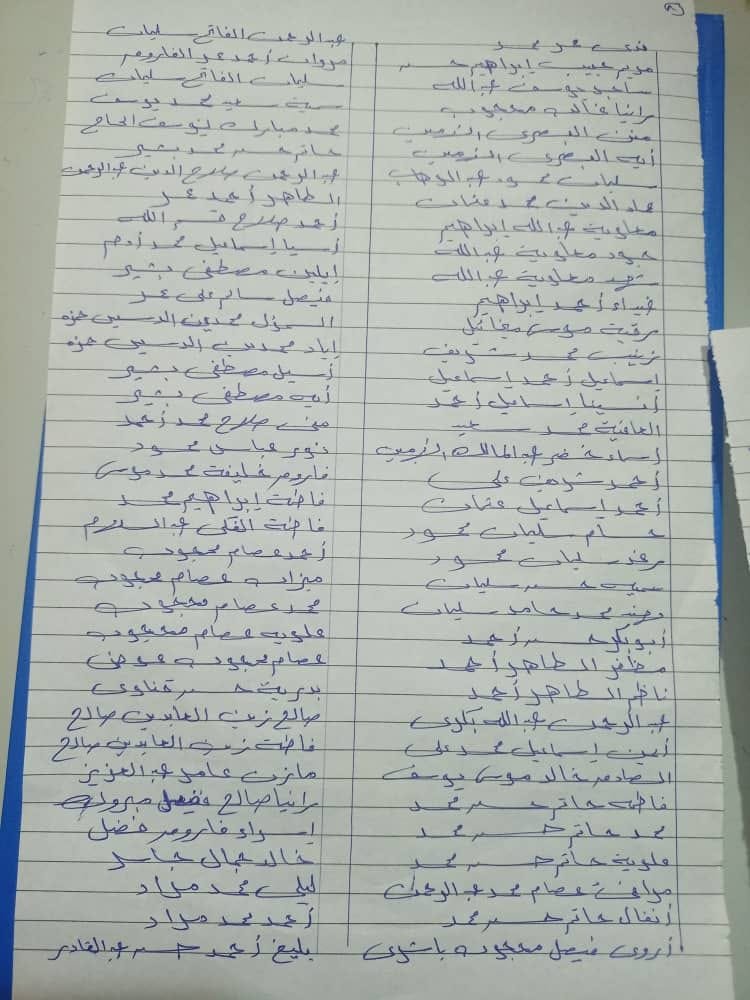 فدوى عمر محمد
مريم حبيب إبراهيم حسن
ساجد يوسف عبدالله
رانيا خالد محجوب
منى البصرى الزمين
آيه البصرى الزمين
سليمان محمود عبدالوهاب
عماد الدين محمد عثمان
معاوية عبدالله إبراهيم
جود معاوية عبدالله
شهد معاوية عبدالله
ضياء أحمد إبراهيم
رقية موسى ميفائل
زينب محمد شريف
إسماعيل أحمد إسماعيل
إسماعيل أحمد
العافية محمد سعيد
إسراء خضر عبدالمالك الزمين
أحمد على
أحمد إسماعيل عثمان
حسام سليمان محمود
رغد سليمان محمود
سميه حسن سليمان
محمد حامد سليمان
أبوبكر حسن أحمد
مظفر الطاهر أحمد
ناظر الطاهر أحمد
عبدالرحمن عبدالله بكرى
أمين إسماعيل محمد على
الصادق خالد موسى يوسف
فاطمه حاتم حسن محمد
محمد حاتم حسن محمد
علوية حاتم حسن محمد
عصام محمد عبدالرحمن
أنفال حاتم حسن محمد
أروى فيصل محجوب باشرى
عبدالرحمن الفاتح سليمان
مروان أحمد عمر الفاروق
سليمان الفاتح سليمان
سعيد محمد يوسف
محمد مبارك يوسف الحاج
حاتم حسن محمد بشير
عبدالرحمن صلاح الدين عبدالرحمن
الطاهر أحمد عمر
أحمد صلاح قسم الله
آسيا إسماعيل محمد آدم
إيلين مصطفى بشير
فيصل سالم على عمر
المؤمل محمدين الدسيس حمزه
إياد محمدين الدسيس حمزه
أسيل مصطفى بشير
آيه مصطفى بشير
منى صلاح محمد أحمد
نور عباس محمود
فاروق خليفة محمد موسى
فاطمة إبراهيم محمد
فاطمة الفكى عبدالسلام
أحمد عصام محجوب
ميزاب عصام محجوب
محمد عصام محجوب
علويه عصام محجوب
عصام محجوب عوض
بدرية حسن قناوى
صالح زين العابدين صالح
فاطمة زين العابدين صالح
مازن عامر عبدالعزيز
رانيا صالح فضل مبروك
إسراء فاروق فضل
خالد جمال جابر
ليلى محمد مراد
أحمد محمد مراد
بليغ أحمد حسن عبدالقادر